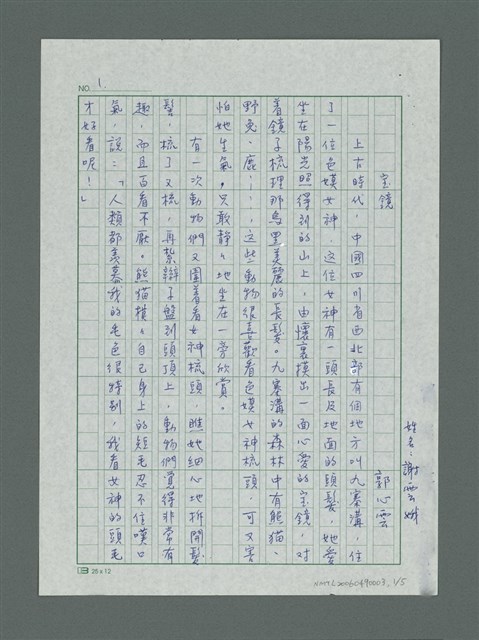 NO. 1.
姓名：謝雲
寶鏡
郭心雲
上古時代，中國四川省西北部有個地方叫九寨溝，住
了一位色嫫女神。這位女神有一頭長及地面的頭髮，她愛
坐在陽光照得到的山上，由懷裏摸出一面心愛的寶鏡，對
著鏡子梳理那烏黑美麗的長髮。九寨溝的森林中有熊貓、
野兔、鹿……，這些動物很喜歡看色嫫女神梳頭，可又害
怕她生氣，只敢靜靜地坐在一旁欣賞。
有一次動物們又圍著看女神梳頭，瞧她細心地拆開髮
髻，梳了又梳，再紮辮子盤到頭頂上，動物們覺得非常有
趣，而且百看不厭。熊貓摸摸自己身上的短毛忍不住嘆口
氣，說：「人類都羨慕我的毛色很特別，我看女神的頭毛
才好看呢！」
25 x 12
NMTL20060490003. 1/5